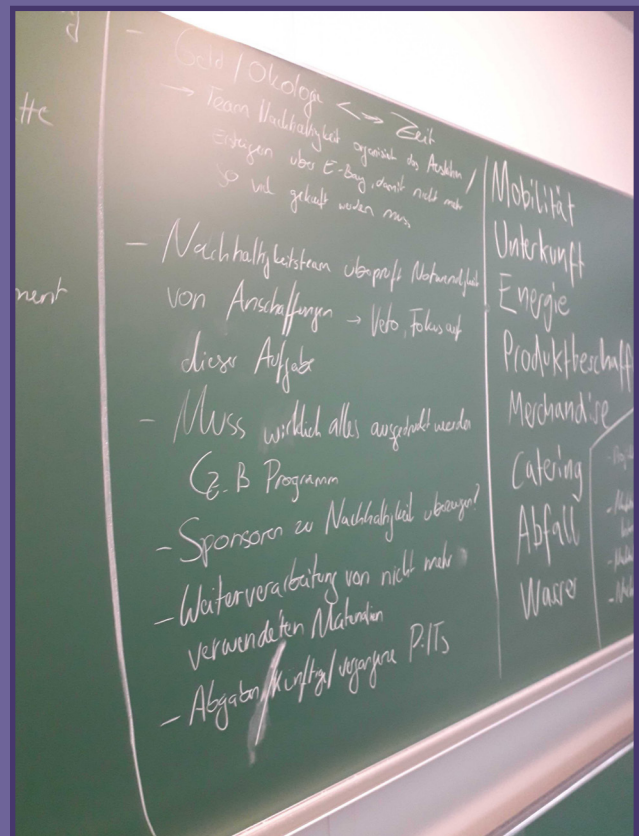 d
tte
ment
- Geld / Ökologie <-> Zeit
→ Team Nachhaltigkeit organisiert das Ausleihen /
Ersteigern über E-Bay, damit nicht mehr
so viel gekauft werden muss
- Nachhaltigkeitsteam überprüft Notwendigkeit
von Anschaffungen → Veto, Fokus auf
dieser Aufgabe
- Muss wirklich alles ausgedruckt werden
(z.B Programm
- Sponsoren zu Nachhaltigkeit überzeugen?
- Weiterverarbeitung von nicht mehr
verwendeten Materialien
- Abgaben/künftige/vergangene P.ITs
Mobilität
Unterkunft
Energie
Produktbeschaff
Merchandise
Catering
Abfall
Wasser